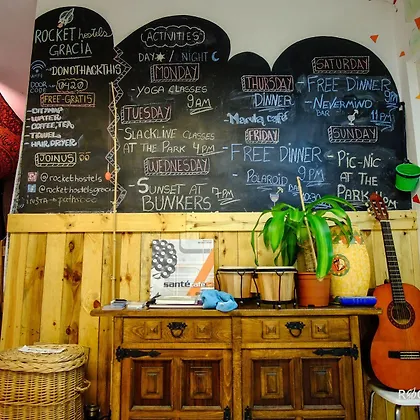 ROCKET hostels
GRACIA
DONOTHACKTHIS
DOOR CODE
0420
FREE-GRATIS
-CITYMAP
-WATER
-COFFEE, TEA
-TOWELS
-HAIR DRYER
JOIN US
@rockethostels
@rockethostelsgracia
ACTIVITIES
DAY NIGHT
MONDAY
-YOGA CLASSES
9AM
TUESDAY
-SLACKLINE CLASSES
AT THE PARK 4PM
WEDNESDAY
-SUNSET AT
BUNKERS
7PM
THURSDAY
DINNER
FRIDAY
-FREE DINNER
-POLAROID BAR
9PM
SATURDAY
-FREE DINNER
-NEVERMIND
BAR
11PM
SUNDAY
-PIC-NIC
AT THE
PARK
santé